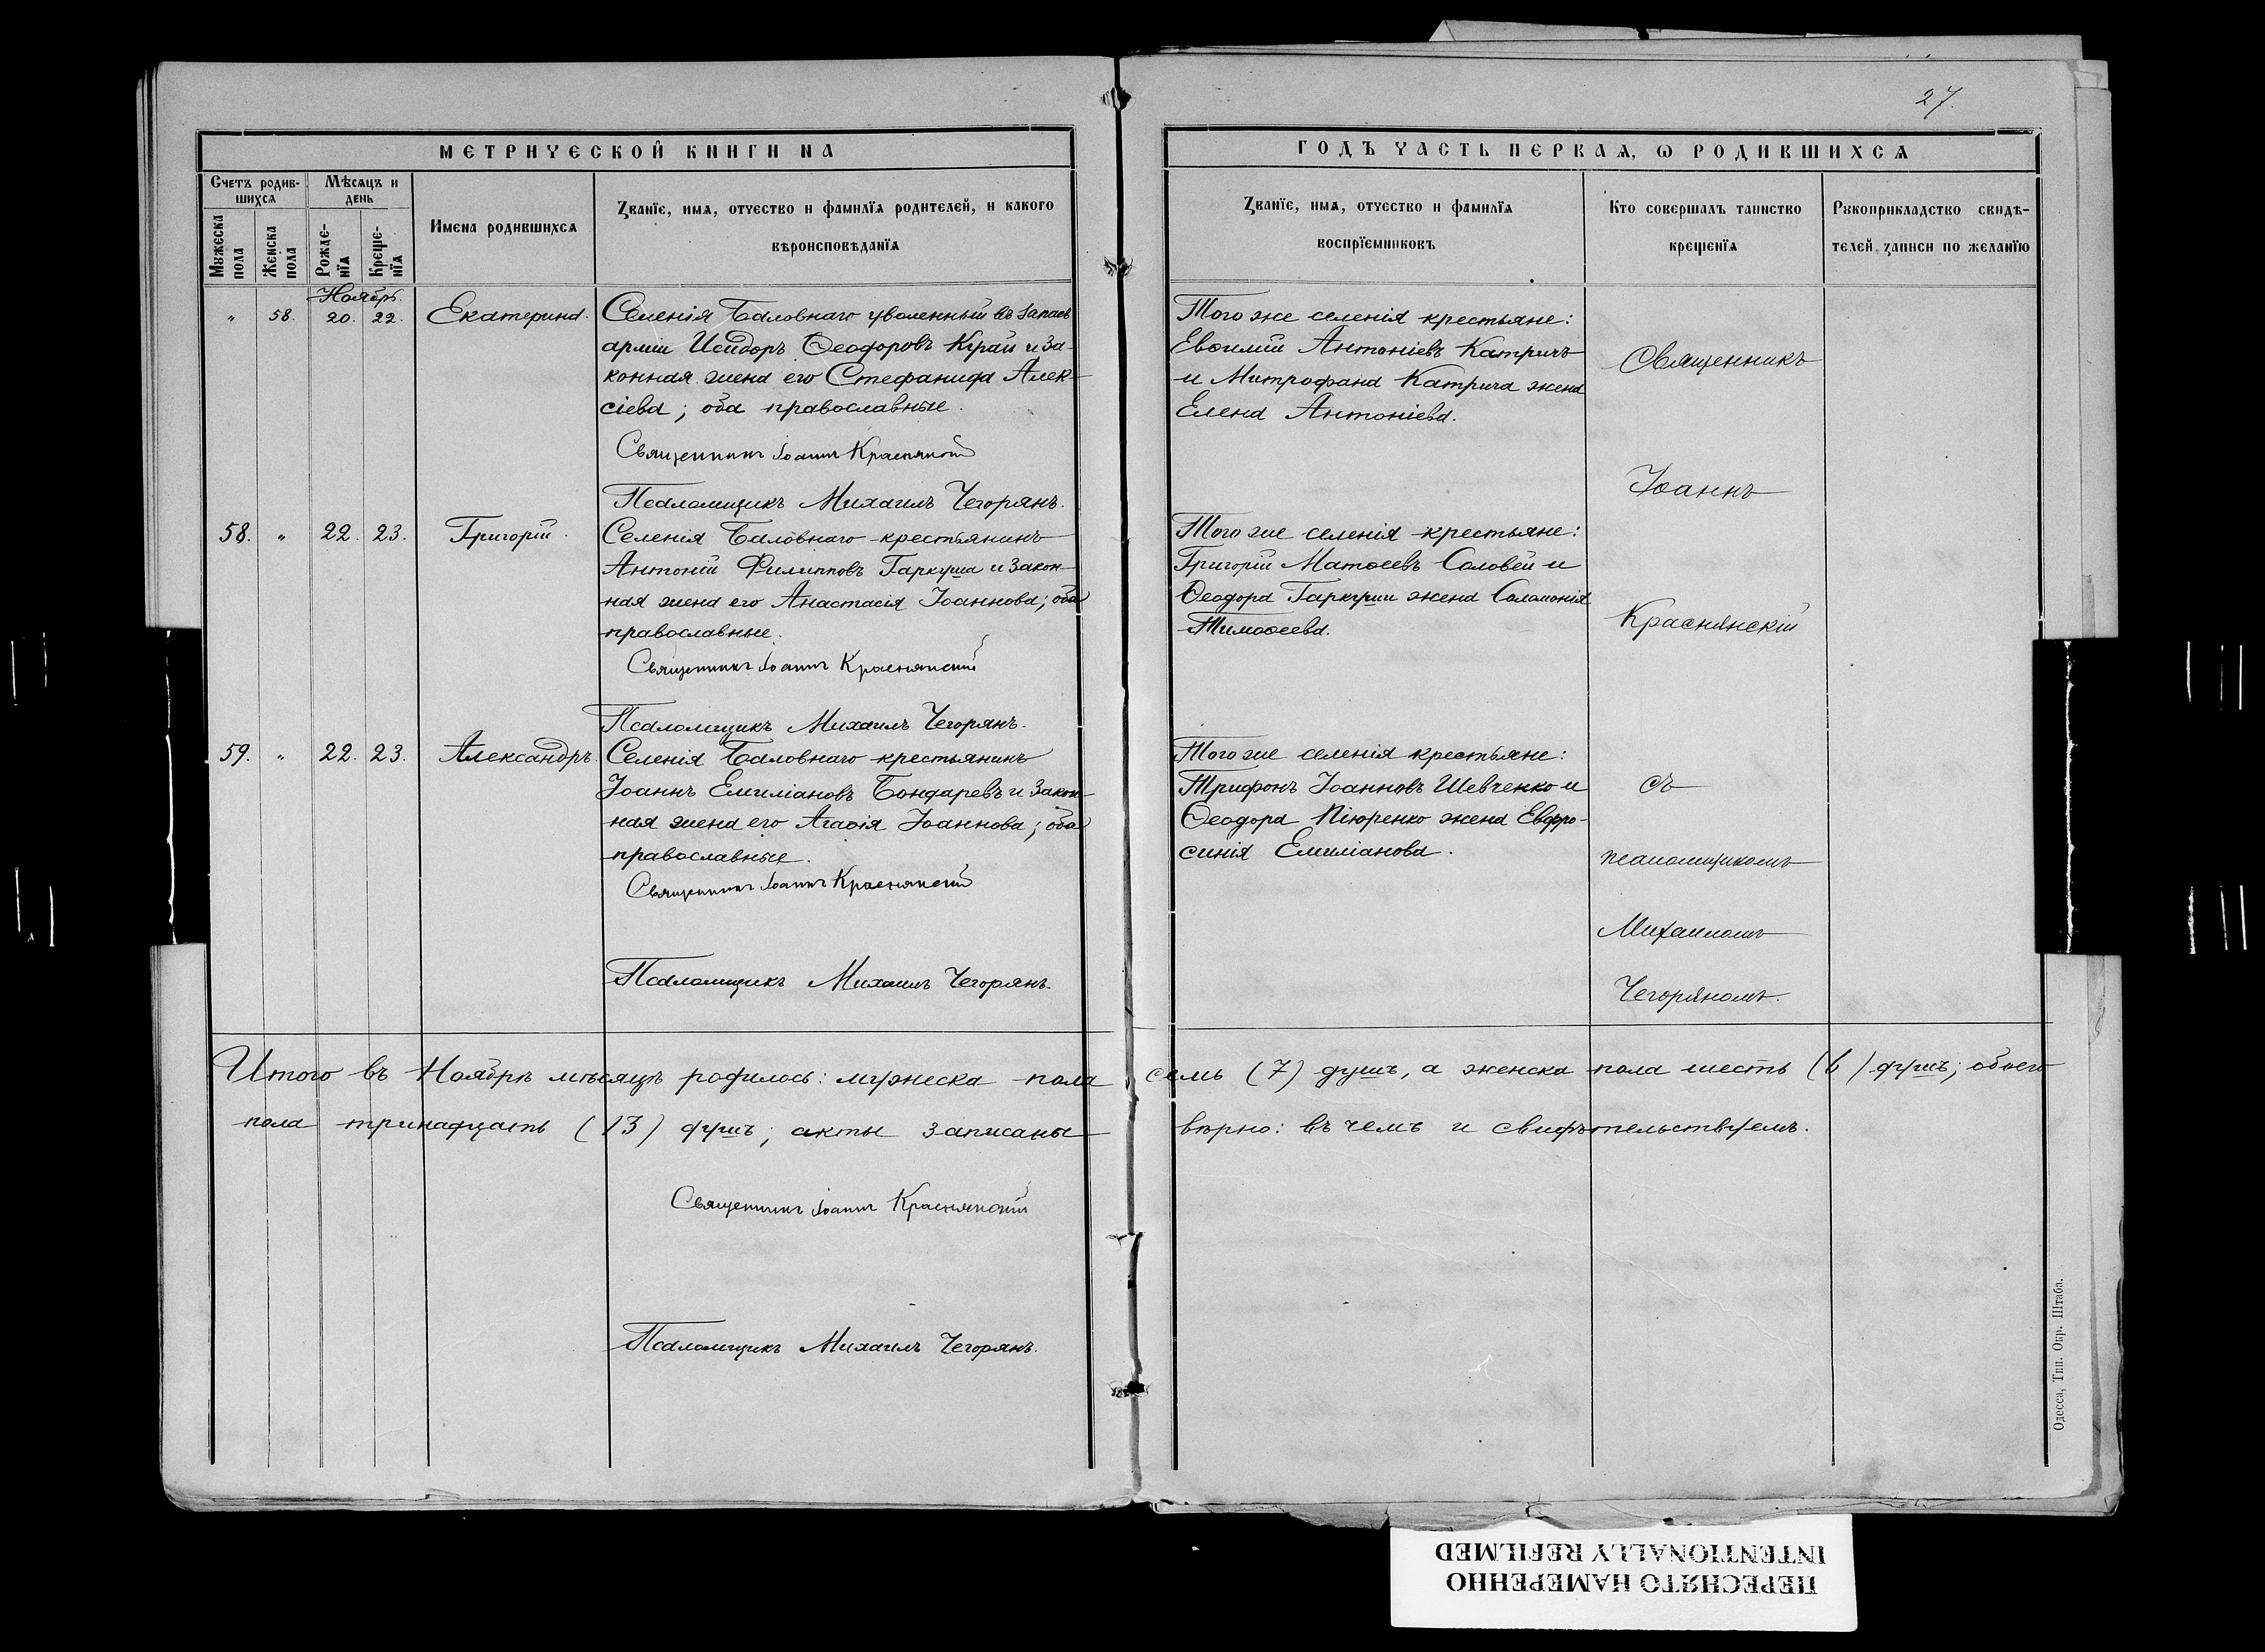 27.
МЕТРИЧЕСКОЙ КНИГИ НА
ГОДЪ ЧАСТЬ ПЕРВАЯ, Ѡ РОДИВШИХСѦ
Счетъ родив-
шихсѧ
Мѣсѧцъ и
день
Мужеска
пола
Женска
пола
Рожде-
нїѧ
Креще-
нїѧ
Имена родившихсѧ
Званїе, имѧ, отчество и фамилїѧ родителей, и какого
вѣроисповѣданїѧ
Званїе, имѧ, отчество и фамилїѧ
воспрїемниковъ
Кто совершалъ таинство
крещенїѧ
Рукоприкладство свидѣ-
телей записи по желанїю
Ноябрь.
„ 58. 20. 22. Екатерина.
Селенія Баловнаго уволенный въ запасъ
арміи Исидоръ Ѳеодоровъ Край и за-
конная жена его Стефанида Алек-
сіева; оба православные.
Священникъ Іоаннъ Краснянскій
Псаломщикъ Михаилъ Чегорянъ.
Того же селенія крестьяне:
Евѳимій Антоніевъ Катричъ
и Митрофана Катрича жена
Елена Антоніева.
58. „ 22. 23. Григорій.
Селенія Баловнаго крестьянинъ
Антоній Филипповъ Гаркуша и закон-
ная жена его Анастасія Іоаннова; оба
православные.
Священникъ Іоаннъ Краснянскій
Псаломщикъ Михаилъ Чегорянъ.
Того же селенія крестьяне:
Григорій Матѳеевъ Соловей и
Ѳеодора Гаркуши жена Соломонія
Тимоѳеева.
59. „ 22. 23. Александръ.
Селенія Баловнаго крестьянинъ
Іоаннъ Емиліановъ Бондаревъ и закон-
ная жена его Агаѳія Іоаннова; оба
православные.
Священникъ Іоаннъ Краснянскій
Псаломщикъ Михаилъ Чегорянъ.
Того же селенія крестьяне:
Трифонъ Іоанновъ Шевченко и
Ѳеодора Піюренко жена Евфро-
синія Емиліанова.
Священникъ
Іоаннъ
Краснянскій
съ
псаломщикомъ
Михаиломъ
Чегоряномъ.
Итого въ Ноябрѣ мѣсяцѣ родилось: мужеска пола семь (7) душъ, а женска пола шесть (6) душъ; обоего
пола тринадцать (13) душъ; акты записаны вѣрно: въ чемъ и свидѣтельствуемъ.
Священникъ Іоаннъ Краснянскій
Псаломщикъ Михаилъ Чегорянъ.
Одесса, Тип. Окр. Штаба.
ПЕРЕСНЯТО НАМЕРЕННО
INTENTIONALLY REFILMED